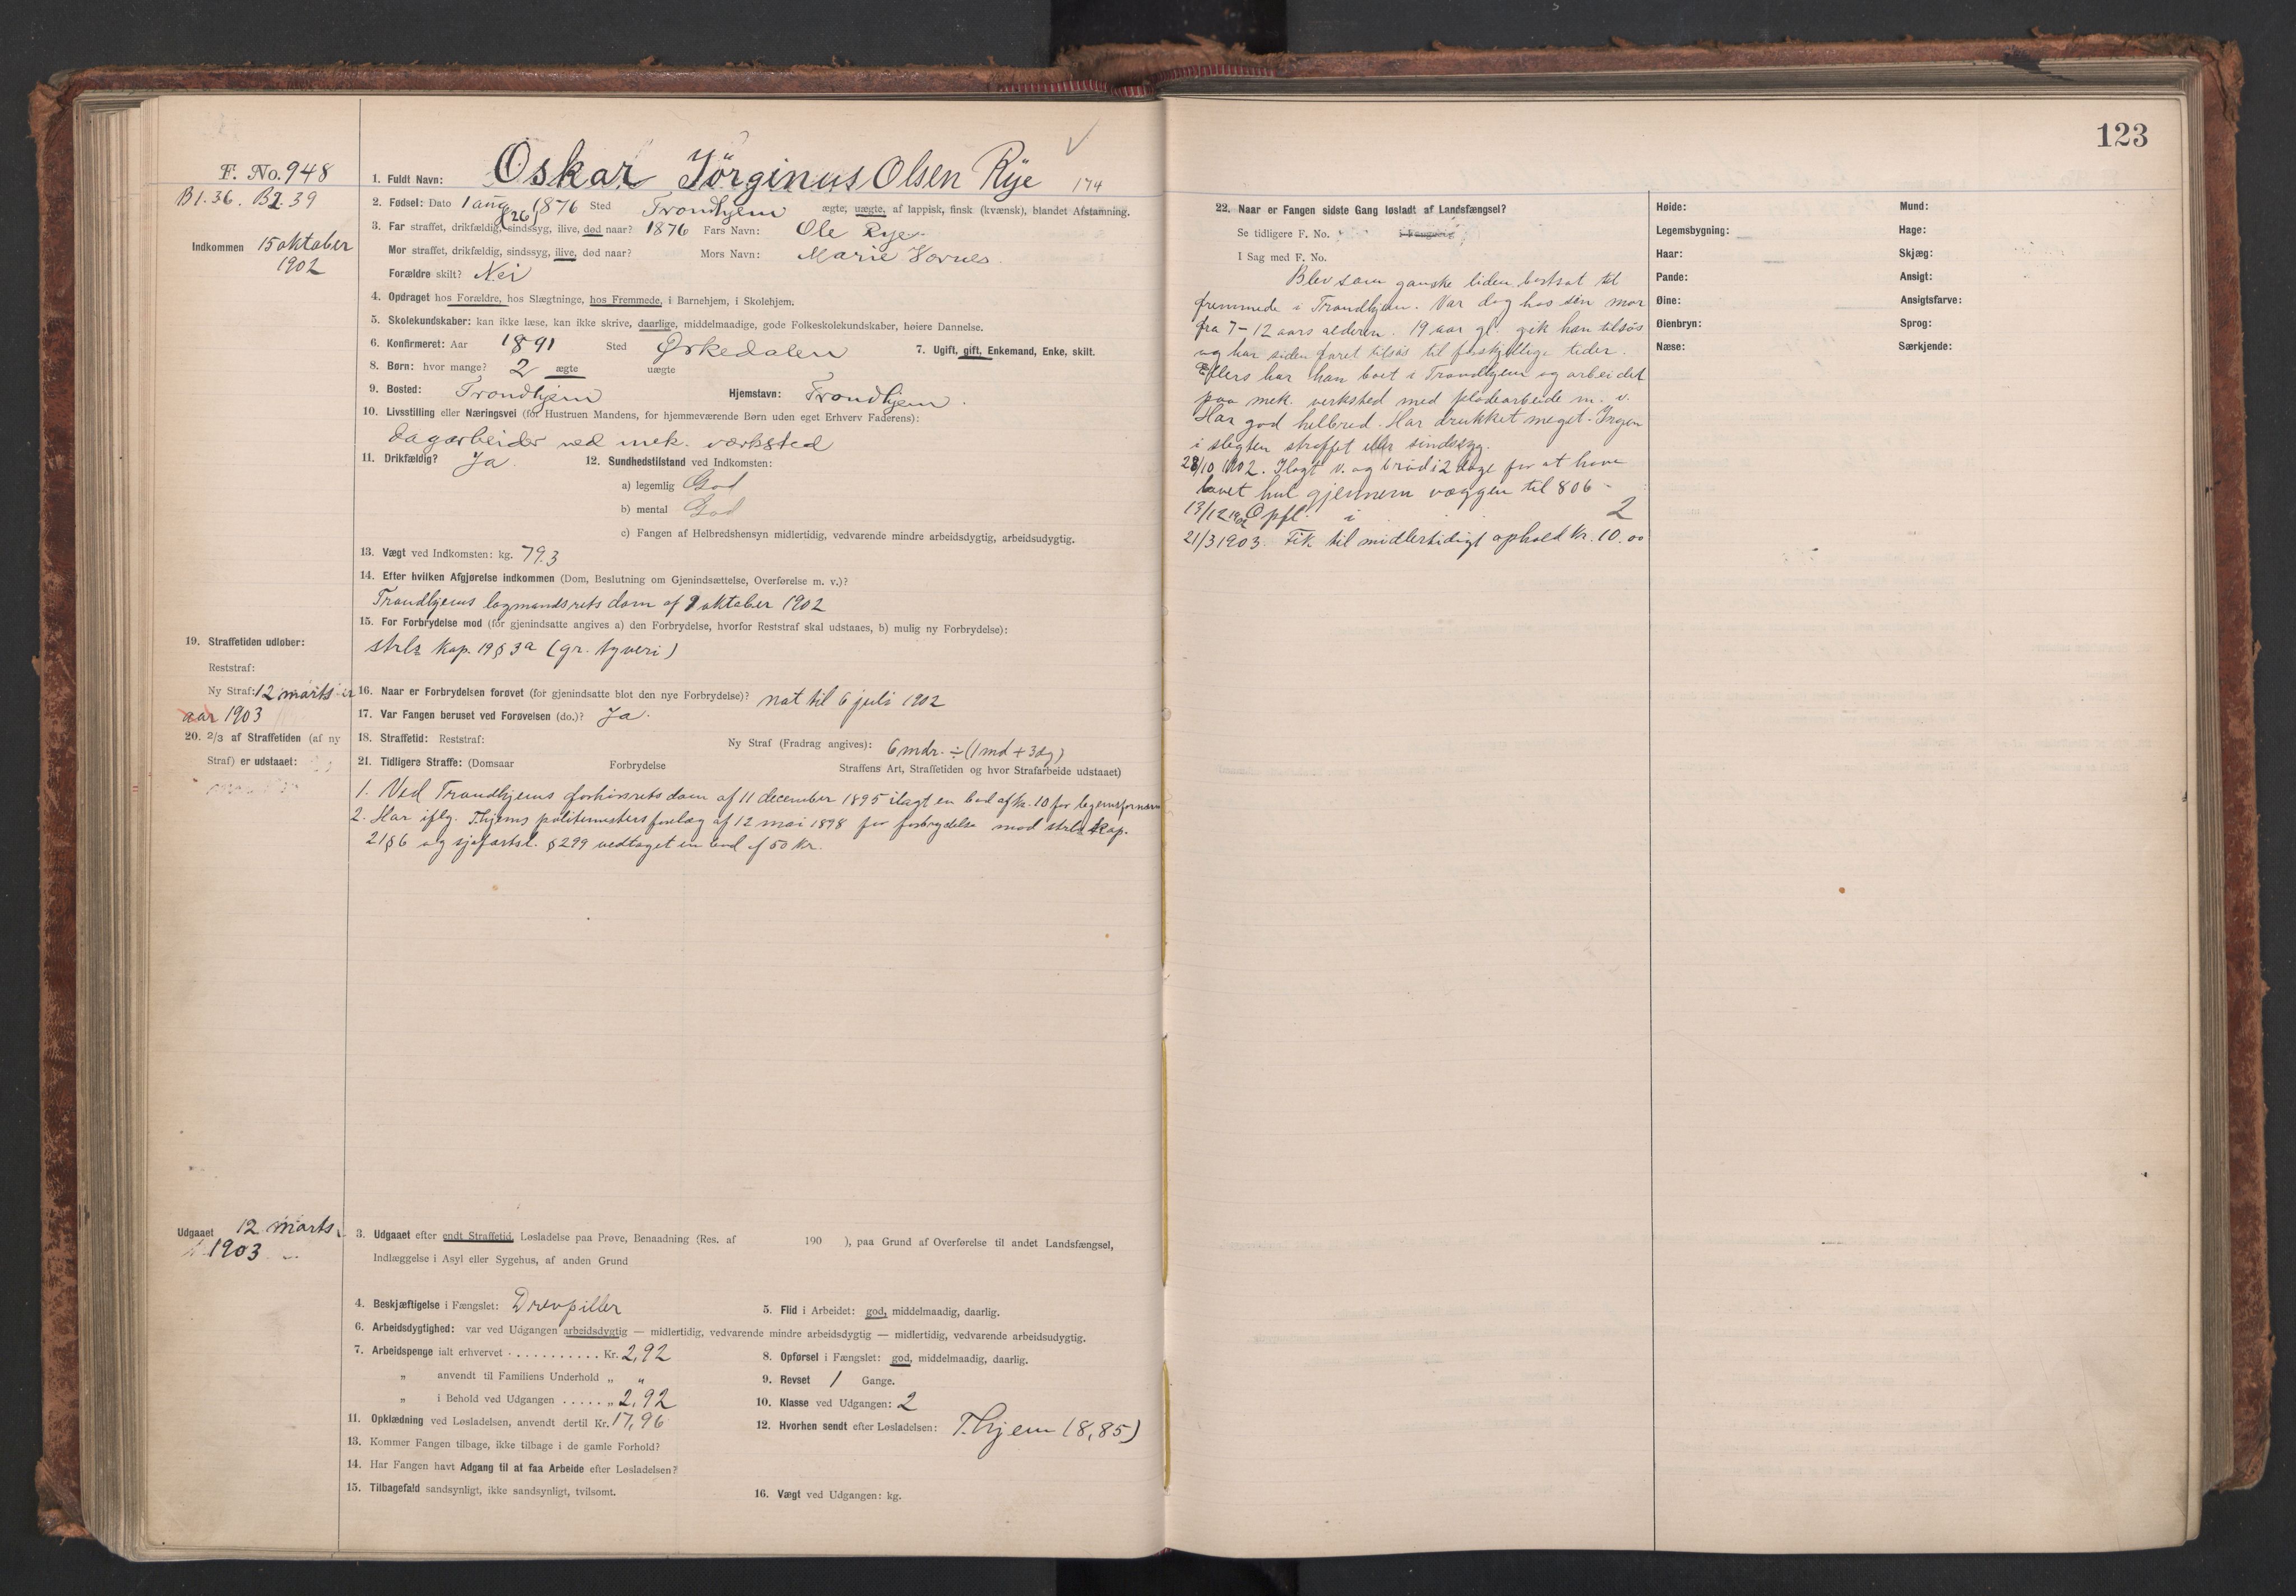 123
F. No. 948
B1.36. B2.39
Indkommen 15 oktober
1902
1. Fuldt Navn: Oskar Jörginus Olsen Rye 174
2. Fødsel: Dato 1 aug (26) 1876 Sted Trondhjem ægte, uægte, af lappisk, finsk (kvænsk), blandet Afstamning.
3. Far straffet, drikfældig, sindssyg, ilive, død naar? 1876 Fars Navn: Ole Rye.
Mor straffet, drikfældig, sindssyg, ilive, død naar? Mors Navn: Marie
Forældre skilt? Nei
4. Opdraget hos Forældre, hos Slægtninge, hos Fremmede, i Barnehjem, i Skolehjem.
5. Skolekundskaber: kan ikke læse, kan ikke skrive, daarlige, middelmaadige, gode Folkeskolekundskaber, høiere Dannelse.
6. Konfirmeret: Aar 1891 Sted Ørkedalen 7. Ugift, gift, Enkemand, Enke, skilt.
8. Børn: hvor mange? 2 ægte uægte
9. Bosted: Trondhjem Hjemstavn: Trondhjem.
10. Livsstilling eller Næringsvei (for Hustruen Mandens, for hjemmeværende Børn uden eget Erhverv Faderens):
dagarbeider ved mek. værksted
11. Drikfældig? Ja 12. Sundhedstilstand ved Indkomsten:
a) legemlig God
b) mental God
c) Fangen af Helbredshensyn midlertidig, vedvarende mindre arbeidsdygtig, arbeidsudygtig.
13. Vægt ved Indkomsten: kg. 79.3
14. Efter hvilken Afgjørelse indkommen (Dom, Beslutning om Gjenindsættelse, Overførelse m. v.)?
Trondhjems lagmandsrets dom af 9 oktober 1902
15. For Forbrydelse mod (for gjenindsatte angives a) den Forbrydelse, hvorfor Reststraf skal udstaaes, b) mulig ny Forbrydelse):
strls kap. 19 § 3a (gr. tyveri)
16. Naar er Forbrydelsen forøvet (for gjenindsatte blot den nye Forbrydelse)? nat til 6 juli 1902
17. Var Fangen beruset ved Forøvelsen (do.)? Ja.
18. Straffetid: Reststraf: Ny Straf (Fradrag angives): 6 mdr. ÷ (1 md + 3 dg)
19. Straffetiden udløber:
Reststraf:
Ny Straf: 12 marts
aar 1903
20. 2/3 af Straffetiden (af ny
Straf) er udstaaet:
21. Tidligere Straffe: (Domsaar Forbrydelse Straffens Art, Straffetiden og hvor Strafarbeide udstaaet)
1. Ved Trondhjems forhørsrets dom af 11 december 1895 ilagt en bod af kr. 10 for legemsfornærm
2. Har iflg. Thjems politimesters forelæg af 12 mai 1898 for forbrydelse mod strls kap.
21 § 6 og sjøfartsl. § 299 vedtaget en bod af 50 kr.
Udgaaet 12 marts
1903
3. Udgaaet efter endt Straffetid, Løsladelse paa Prøve, Benaadning (Res. af 190 ), paa Grund af Overførelse til andet Landsfængsel,
Indlæggelse i Asyl eller Sygehus, af anden Grund
4. Beskjæftigelse i Fængslet: Drevpiller 5. Flid i Arbeidet: god, middelmaadig, daarlig.
6. Arbeidsdygtighed: var ved Udgangen arbeidsdygtig — midlertidig, vedvarende mindre arbeidsdygtig — midlertidig, vedvarende arbeidsudygtig.
7. Arbeidspenge ialt erhvervet . . . . . . . . . . . Kr. 2,92 8. Opførsel i Fængslet: god, middelmaadig, daarlig.
„ anvendt til Familiens Underhold „ „ 9. Revset 1 Gange.
„ i Behold ved Udgangen . . . . . „ 2,92 10. Klasse ved Udgangen: 2
11. Opklædning ved Løsladelsen, anvendt dertil Kr. 17,96 12. Hvorhen sendt efter Løsladelsen: T.hjem (8,85)
13. Kommer Fangen tilbage, ikke tilbage i de gamle Forhold?
14. Har Fangen havt Adgang til at faa Arbeide efter Løsladelsen?
15. Tilbagefald sandsynligt, ikke sandsynligt, tvilsomt. 16. Vægt ved Udgangen: kg.
22. Naar er Fangen sidste Gang løsladt af Landsfængsel?
Se tidligere F. No. i Fængslet
I Sag med F. No.
Blev som ganske liden bortsat til
fremmede i Trondhjem. Var dog hos sin mor
fra 7-12 aars alderen. 19 aar gl. gik han tilsös
og har siden faret tilsös til forskjellige tider.
Ellers har han boet i Trondhjem og arbeidet
paa mek. verksted med pladearbeide m. v.
Har god helbred. Har drukket meget. Ingen
i slegten straffet eller sindssyg.
28/10 1902. Ilagt v. og bröd i 2 dage for at have
lavet hul gjennem væggen til 806
13/12 1902 Opfl. i 2
21/3 1903. Fik til midlertidigt ophold kr. 10.00
Høide: Mund:
Legemsbygning: Hage:
Haar: Skjæg:
Pande: Ansigt:
Øine: Ansigtsfarve:
Øienbryn: Sprog:
Næse: Særkjende: